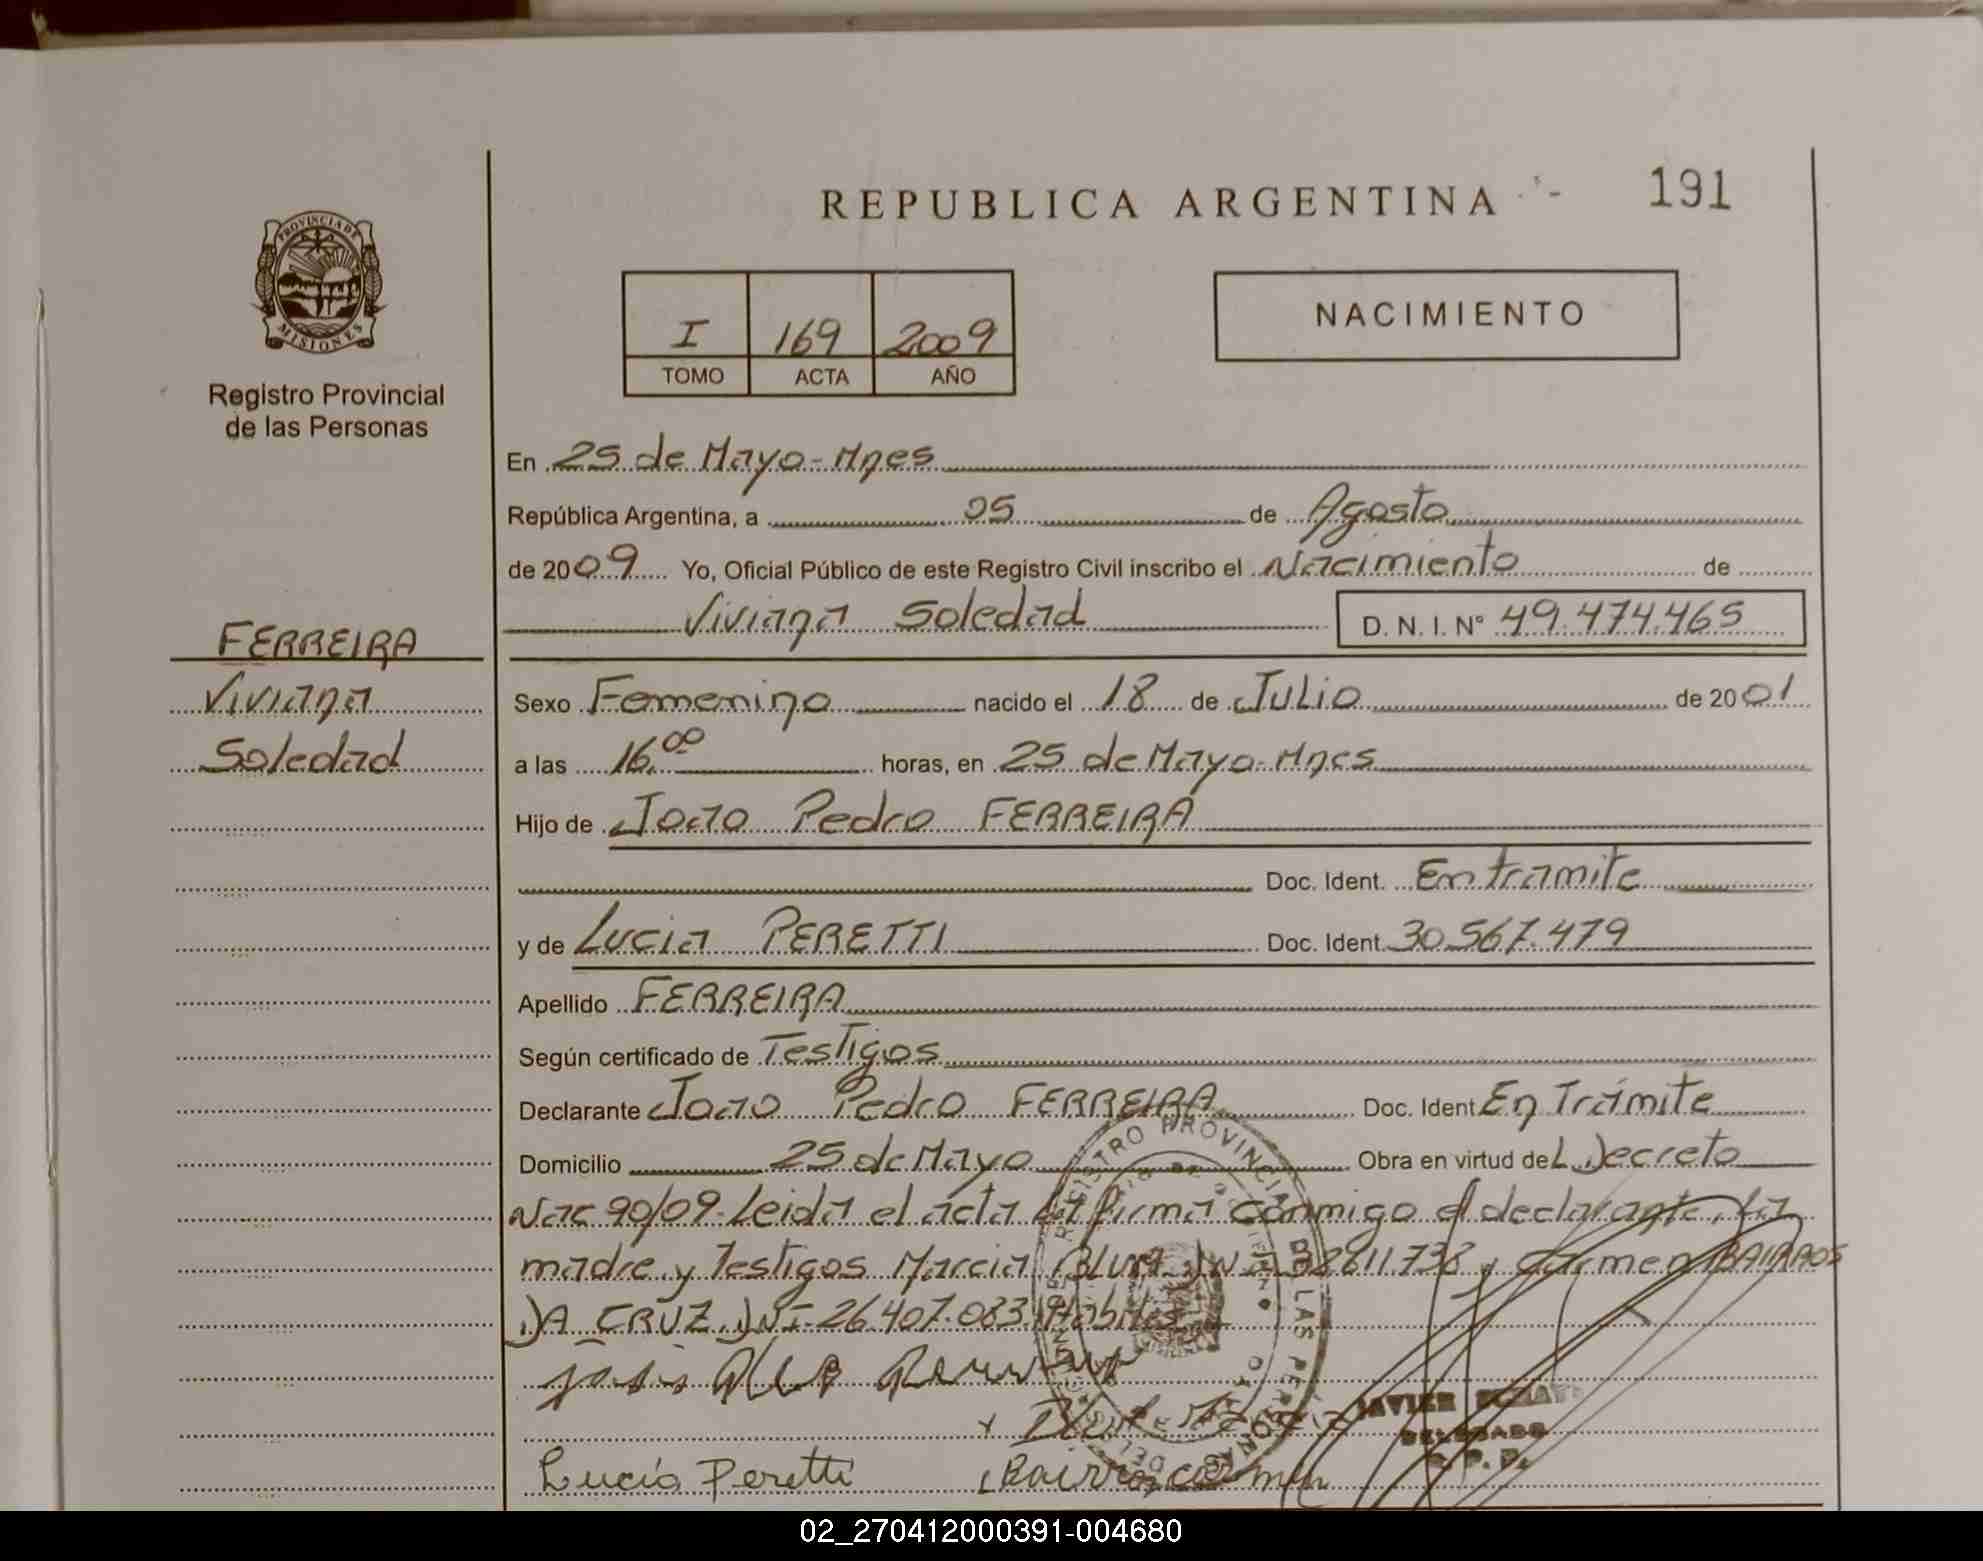 REPUBLICA ARGENTINA
191
PROVINCIA DE
MISIONES
Registro Provincial
de las Personas
I 169 2009
TOMO ACTA AÑO
NACIMIENTO
En 25 de Mayo-Mnes
República Argentina, a 05 de Agosto
de 2009 Yo, Oficial Público de este Registro Civil inscribo el Nacimiento de
Viviana Soledad D. N. I. N° 49.474.465
FERREIRA
Viviana
Soledad
Sexo Femenino nacido el 18 de Julio de 2001
a las 16.00 horas, en 25 de Mayo-Mnes
Hijo de Joao Pedro FERREIRA
Doc. Ident. En tramite
y de Lucia PERETTI Doc. Ident. 30.567.479
Apellido FERREIRA
Según certificado de Testigos
Declarante Joao Pedro FERREIRA Doc. Ident En Trámite
Domicilio 25 de Mayo Obra en virtud del Decreto
Nac 90/09. Leida el acta la firma conmigo el declarante, la
madre y Testigos Marcia BLUM DNI 32811.738 y Carmen BAIRROS
DA CRUZ DNI-26.407.083. Habiles
REGISTRO PROVINCIAL DE LAS PERSONAS
JAVIER
DELEGADO
R. P. P.
Lucía Peretti
02_270412000391-004680